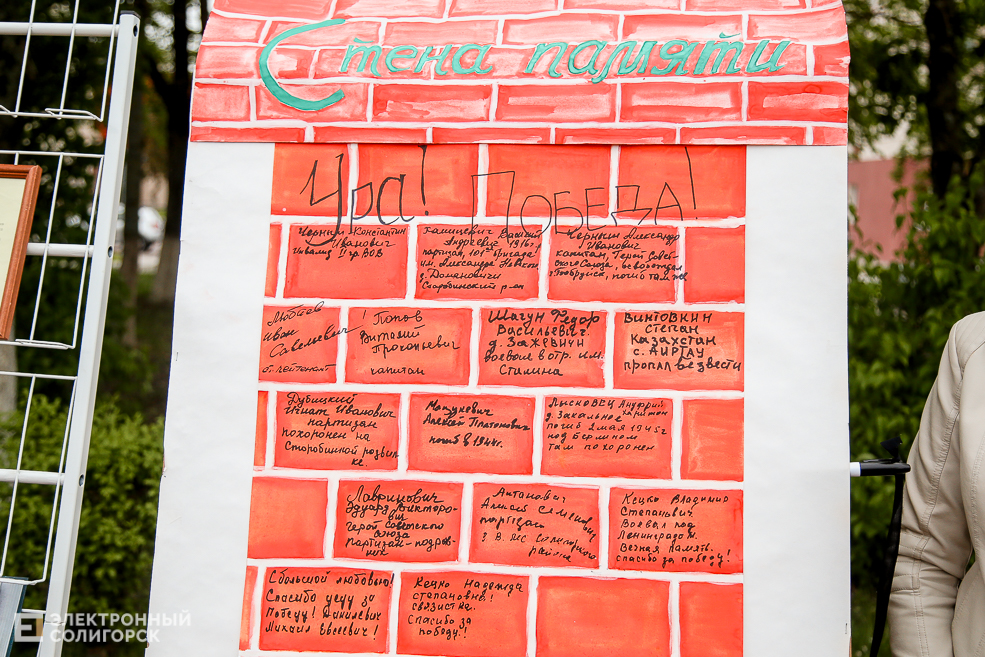 Стена памяти
Ура! ПОБЕДА!
Черныш Константин
Иванович
Инвалид II гр ВОВ
Василий
Андреевич 1916г.
партизан, 101ая бригада
им. Александра Невского
д. Домановичи
Старобинский р-он
Черныш Александр
Иванович
капитан, Герой Совет-
ского Союза, освобождал
г. Бобруйск, погиб там же
Иван
Савельевич
ст. лейтенант
! Попов
Виталий
Прокопьевич
капитан
Шагун Федор
Васильевич.
д. Зажевичи
воевал в отр. им.
Сталина
ВИНТОВКИН
СТЕПАН
КАЗАХСТАН
с. АИРТАУ
пропал без вести
Дубицкий
Игнат Иванович
партизан
похоронен на
Старобинской развил-
ке.
Мацукевич
Алексей Платонович
погиб в 1944г.
Лысковец Ануфрий
д. Закальное капитан
погиб 2 мая 1945г
под Берлином
там похоронен
Лавринович
Эдуард Викторо-
вич
Герой Советского
Союза
партизан-подрыв-
ник
Антонович
Алексей Семенович
партизан
Солигорского
района
Кецко Владимир
Степанович
Воевал под
Ленинградом.
Вечная Память.
спасибо за победу!
С большой любовью!
Спасибо деду за
Победу! Данилевич
Михаил Евсеевич!
Кецко Надежда
степановна!
связистка.
Спасибо за
победу!!
ЭЛЕКТРОННЫЙ
СОЛИГОРСК